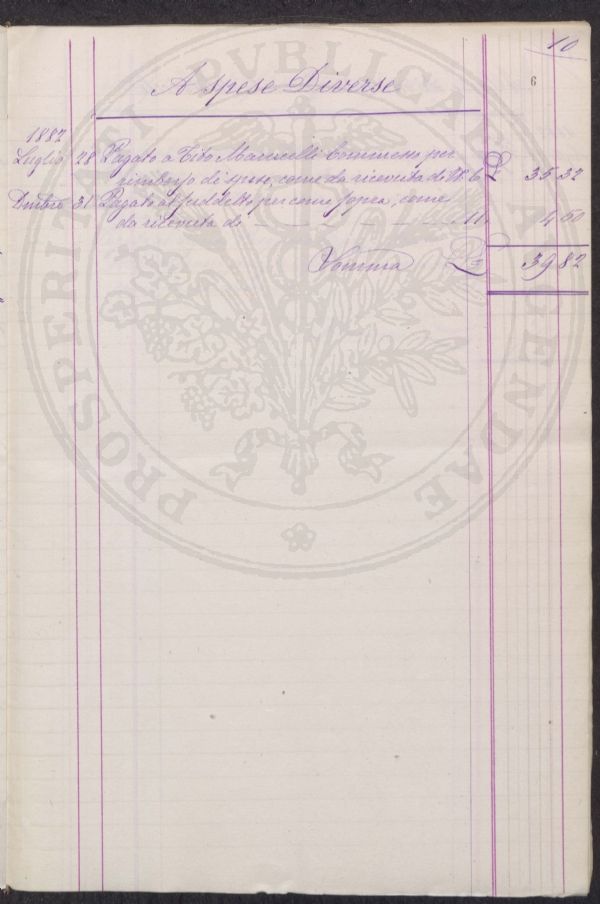 10
6
A spese Diverse
1887
Luglio 28 Pagato a Tito Marucelli Commesso per
rimborso di spese, come da ricevuta di N. 6 £ 35 32
Dmbre 31 Pagato al suddetto per come sopra, come
da ricevuta do — — — — — 11 4 50
Somma £ 39 82
PROSPERITATI PVBLICAE AVGENDAE